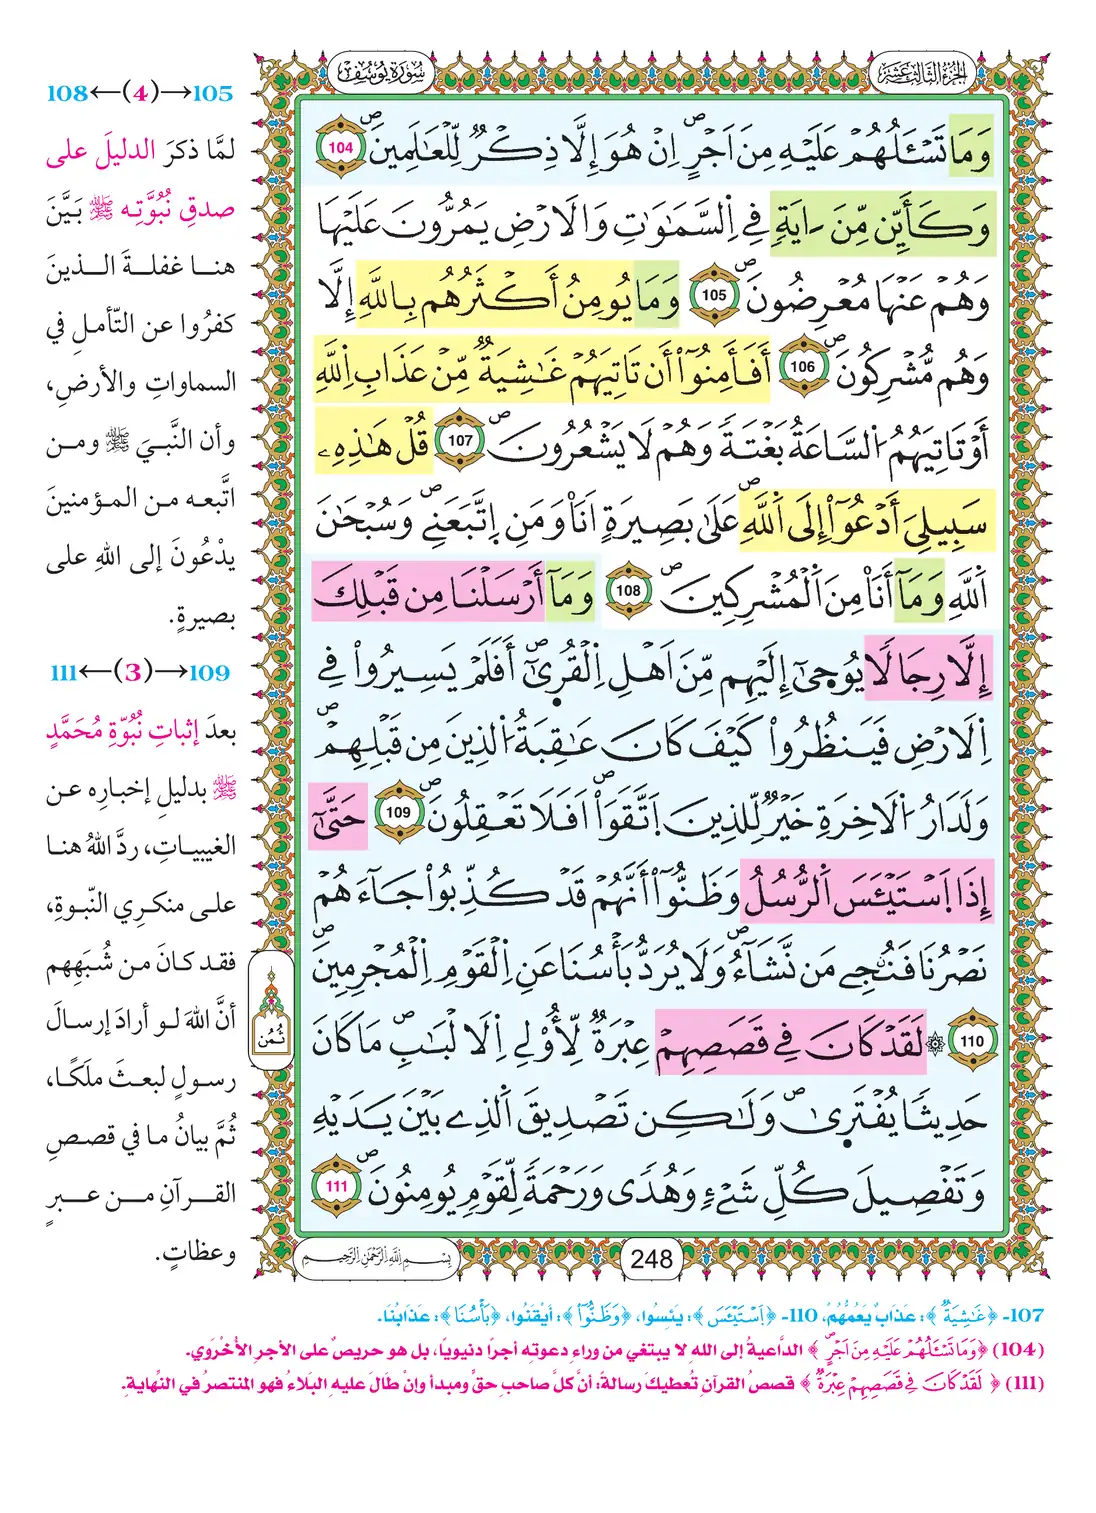 الجزء الثالث عشر
سورة يوسف
وَمَا تَسْـَٔلُهُمْ عَلَيْهِ مِنَ اَجْرٍۖ اِنْ هُوَ إِلَّا ذِكْرٞ لِّلْعَٰلَمِينَۖ 104
وَكَأَيِّن مِّنَ ـايَةٖ فِے اِ۬لسَّمَٰوَٰتِ وَالَارْضِ يَمُرُّونَ عَلَيْهَا
وَهُمْ عَنْهَا مُعْرِضُونَۖ 105 وَمَا يُومِنُ أَكْثَرُهُم بِاللَّهِ إِلَّا
وَهُم مُّشْرِكُونَۖ 106 أَفَأَمِنُوٓاْ أَن تَاتِيَهُمْ غَٰشِيَةٞ مِّنْ عَذَابِ اِ۬للَّهِ
أَوْ تَاتِيَهُمُ اُ۬لسَّاعَةُ بَغْتَةٗ وَهُمْ لَا يَشْعُرُونَۖ 107 قُلْ هَٰذِهِۦ
سَبِيلِيَ أَدْعُوٓاْ إِلَى اَ۬للَّهِۖ عَلَىٰ بَصِيرَةٍ اَنَا۠ وَمَنِ اِ۪تَّبَعَنِےۖ وَسُبْحَٰنَ
اَ۬للَّهِ وَمَآ أَنَا۠ مِنَ اَ۬لْمُشْرِكِينَۖ 108 وَمَآ أَرْسَلْنَا مِن قَبْلِكَ
إِلَّا رِجَالٗا يُوح۪يٰٓ إِلَيْهِم مِّنَ اَهْلِ اِ۬لْقُر۪يٰٓۖ أَفَلَمْ يَسِيرُواْ فِے
اِ۬لَارْضِ فَيَنظُرُواْ كَيْفَ كَانَ عَٰقِبَةُ اُ۬لذِينَ مِن قَبْلِهِمْۖ
وَلَدَارُ اُ۬لَاخِرَةِ خَيْرٞ لِّلذِينَ اَ۪تَّقَوَاْۖ اَفَلَا تَعْقِلُونَۖ 109 حَتَّىٰٓ
إِذَا اَ۪سْتَيْـَٔسَ اَ۬لرُّسُلُ وَظَنُّوٓاْ أَنَّهُمْ قَدْ كُذِّبُواْ جَآءَهُمْ
نَصْرُنَا فَنُنجِے مَن نَّشَآءُۖ وَلَا يُرَدُّ بَأْسُنَا عَنِ اِ۬لْقَوْمِ اِ۬لْمُجْرِمِينَۖ
110 ۞ لَقَدْ كَانَ فِے قَصَصِهِمْ عِبْرَةٞ لِّأُوْلِے اِ۬لَالْبَٰبِۖ مَا كَانَ
حَدِيثاٗ يُفْتَر۪يٰۖ وَلَٰكِن تَصْدِيقَ اَ۬لذِے بَيْنَ يَدَيْهِ
وَتَفْصِيلَ كُلِّ شَےْءٖ وَهُديٗ وَرَحْمَةٗ لِّقَوْمٖ يُومِنُونَۖ 111
ثُمُن
248
بِسْمِ اللَّهِ الرَّحْمَٰنِ الرَّحِيمِ
105→(4)←108
لمَّا ذكرَ الدليلَ على
صدقِ نُبُوَّتِه ﷺ بَيَّنَ
هنا غفلةَ الذينَ
كفرُوا عن التّأملِ في
السماواتِ والأرضِ،
وأن النَّبيَ ﷺ ومن
اتَّبعه من المؤمنينَ
يدْعُونَ إلى اللهِ على
بصيرةٍ.
109→(3)←111
بعدَ إثباتِ نُبُوّةِ مُحَمَّدٍ
ﷺ بدليلِ إخبارِه عن
الغيبياتِ، ردَّ اللهُ هنا
على منكرِي النّبوةِ،
فقد كانَ من شُبَهِهم
أنَّ اللهَ لو أرادَ إرسالَ
رسولٍ لبعثَ ملَكًا،
ثُمَّ بيانُ ما في قصصِ
القرآنِ من عبرٍ
وعظاتٍ.
107- ﴿غَٰشِيَةٞ﴾: عذابٌ يَعُمُّهُمْ، 110- ﴿اَ۪سْتَيْـَٔسَ﴾: يَئِسُوا، ﴿وَظَنُّوٓاْ﴾: أيْقَنُوا، ﴿بَأْسُنَا﴾: عَذَابُنَا.
(104) ﴿وَمَا تَسْـَٔلُهُمْ عَلَيْهِ مِنَ اَجْرٍۖ﴾ الدَّاعيةُ إلى اللهِ لا يبتغي من وراءِ دعوتِه أجرًا دنيويًا، بل هو حريصٌ على الأجرِ الأُخْرَوي.
(111) ﴿لَقَدْ كَانَ فِے قَصَصِهِمْ عِبْرَةٞ﴾ قصصُ القرآنِ تُعطيكَ رسالةً: أنَّ كلَّ صاحبِ حقٍّ ومبدأ وإن طالَ عليهِ البَلاءُ فهو المنتصرُ في النّهايةِ.